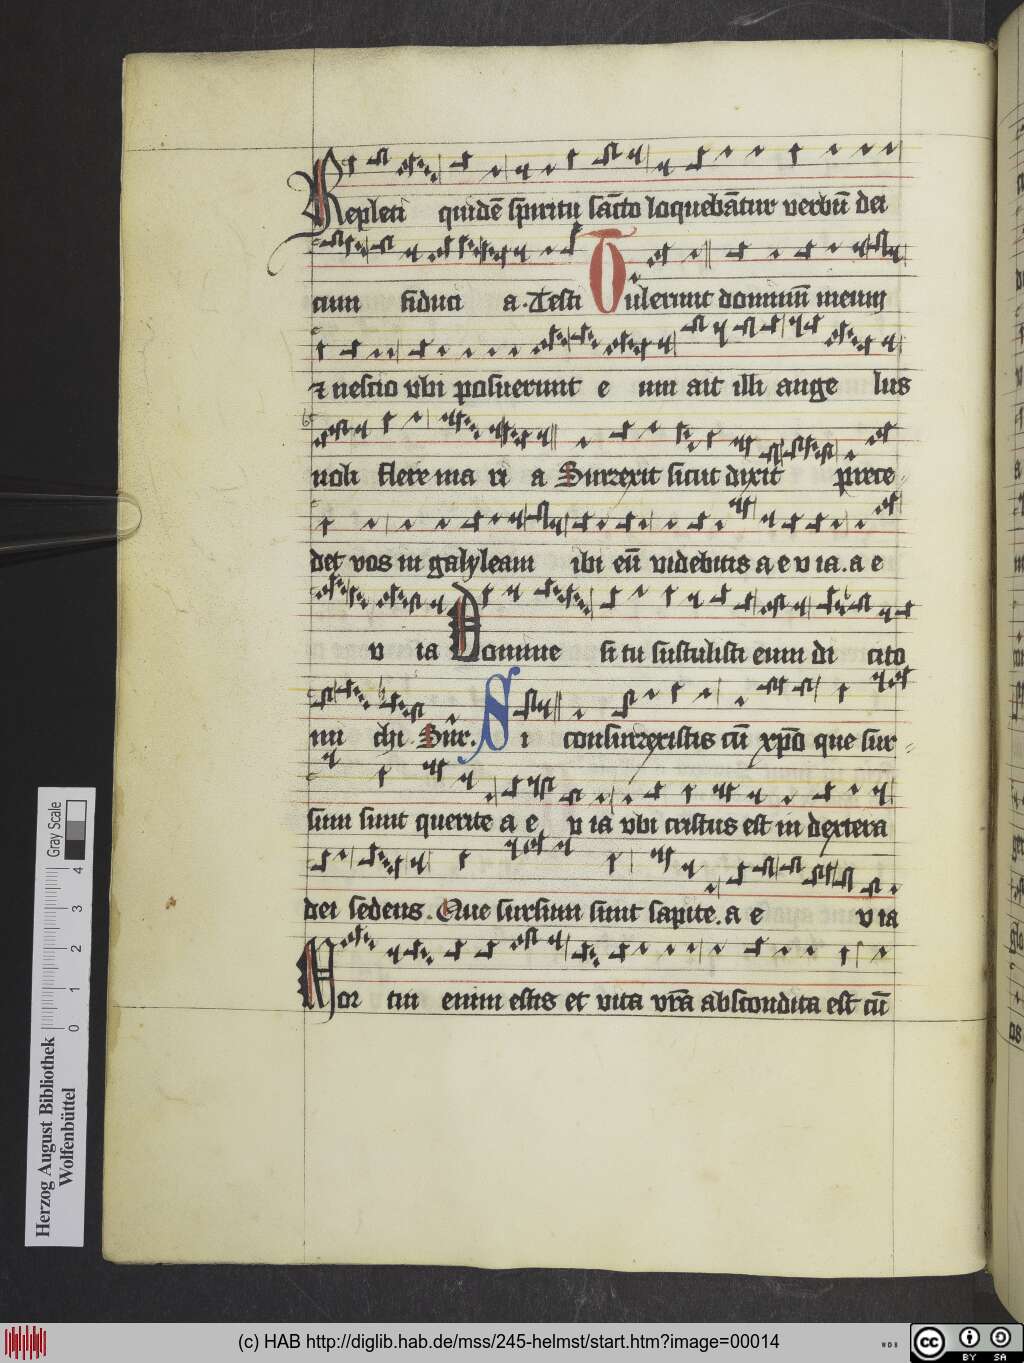 Repleti quidē spiritu sācto loquebātur verbū dei
cum fiduci a. Testi Tulerunt dominū meum
⁊ nescio vbi posuerunt e um ait illi ange lus
noli flere ma ri a Surrexit sicut dixit prece-
det vos in galyleam ibi eū videbitis a e v ia. a e
v ia Domine si tu sustulisti eum di cito
mi chi Sur. Si consurrexistis cū xp̄o que sur-
sum sunt querite a e v ia vbi cristus est in dextera
dei sedens. Que sursum sunt sapite. a e v ia
Mor tui enim estis et vita vr̄a abscondita est cū
Herzog August Bibliothek
Wolfenbüttel
Gray Scale
0 1 2 3 4
(c) HAB http://diglib.hab.de/mss/245-helmst/start.htm?image=00014
WDB
cc BY SA